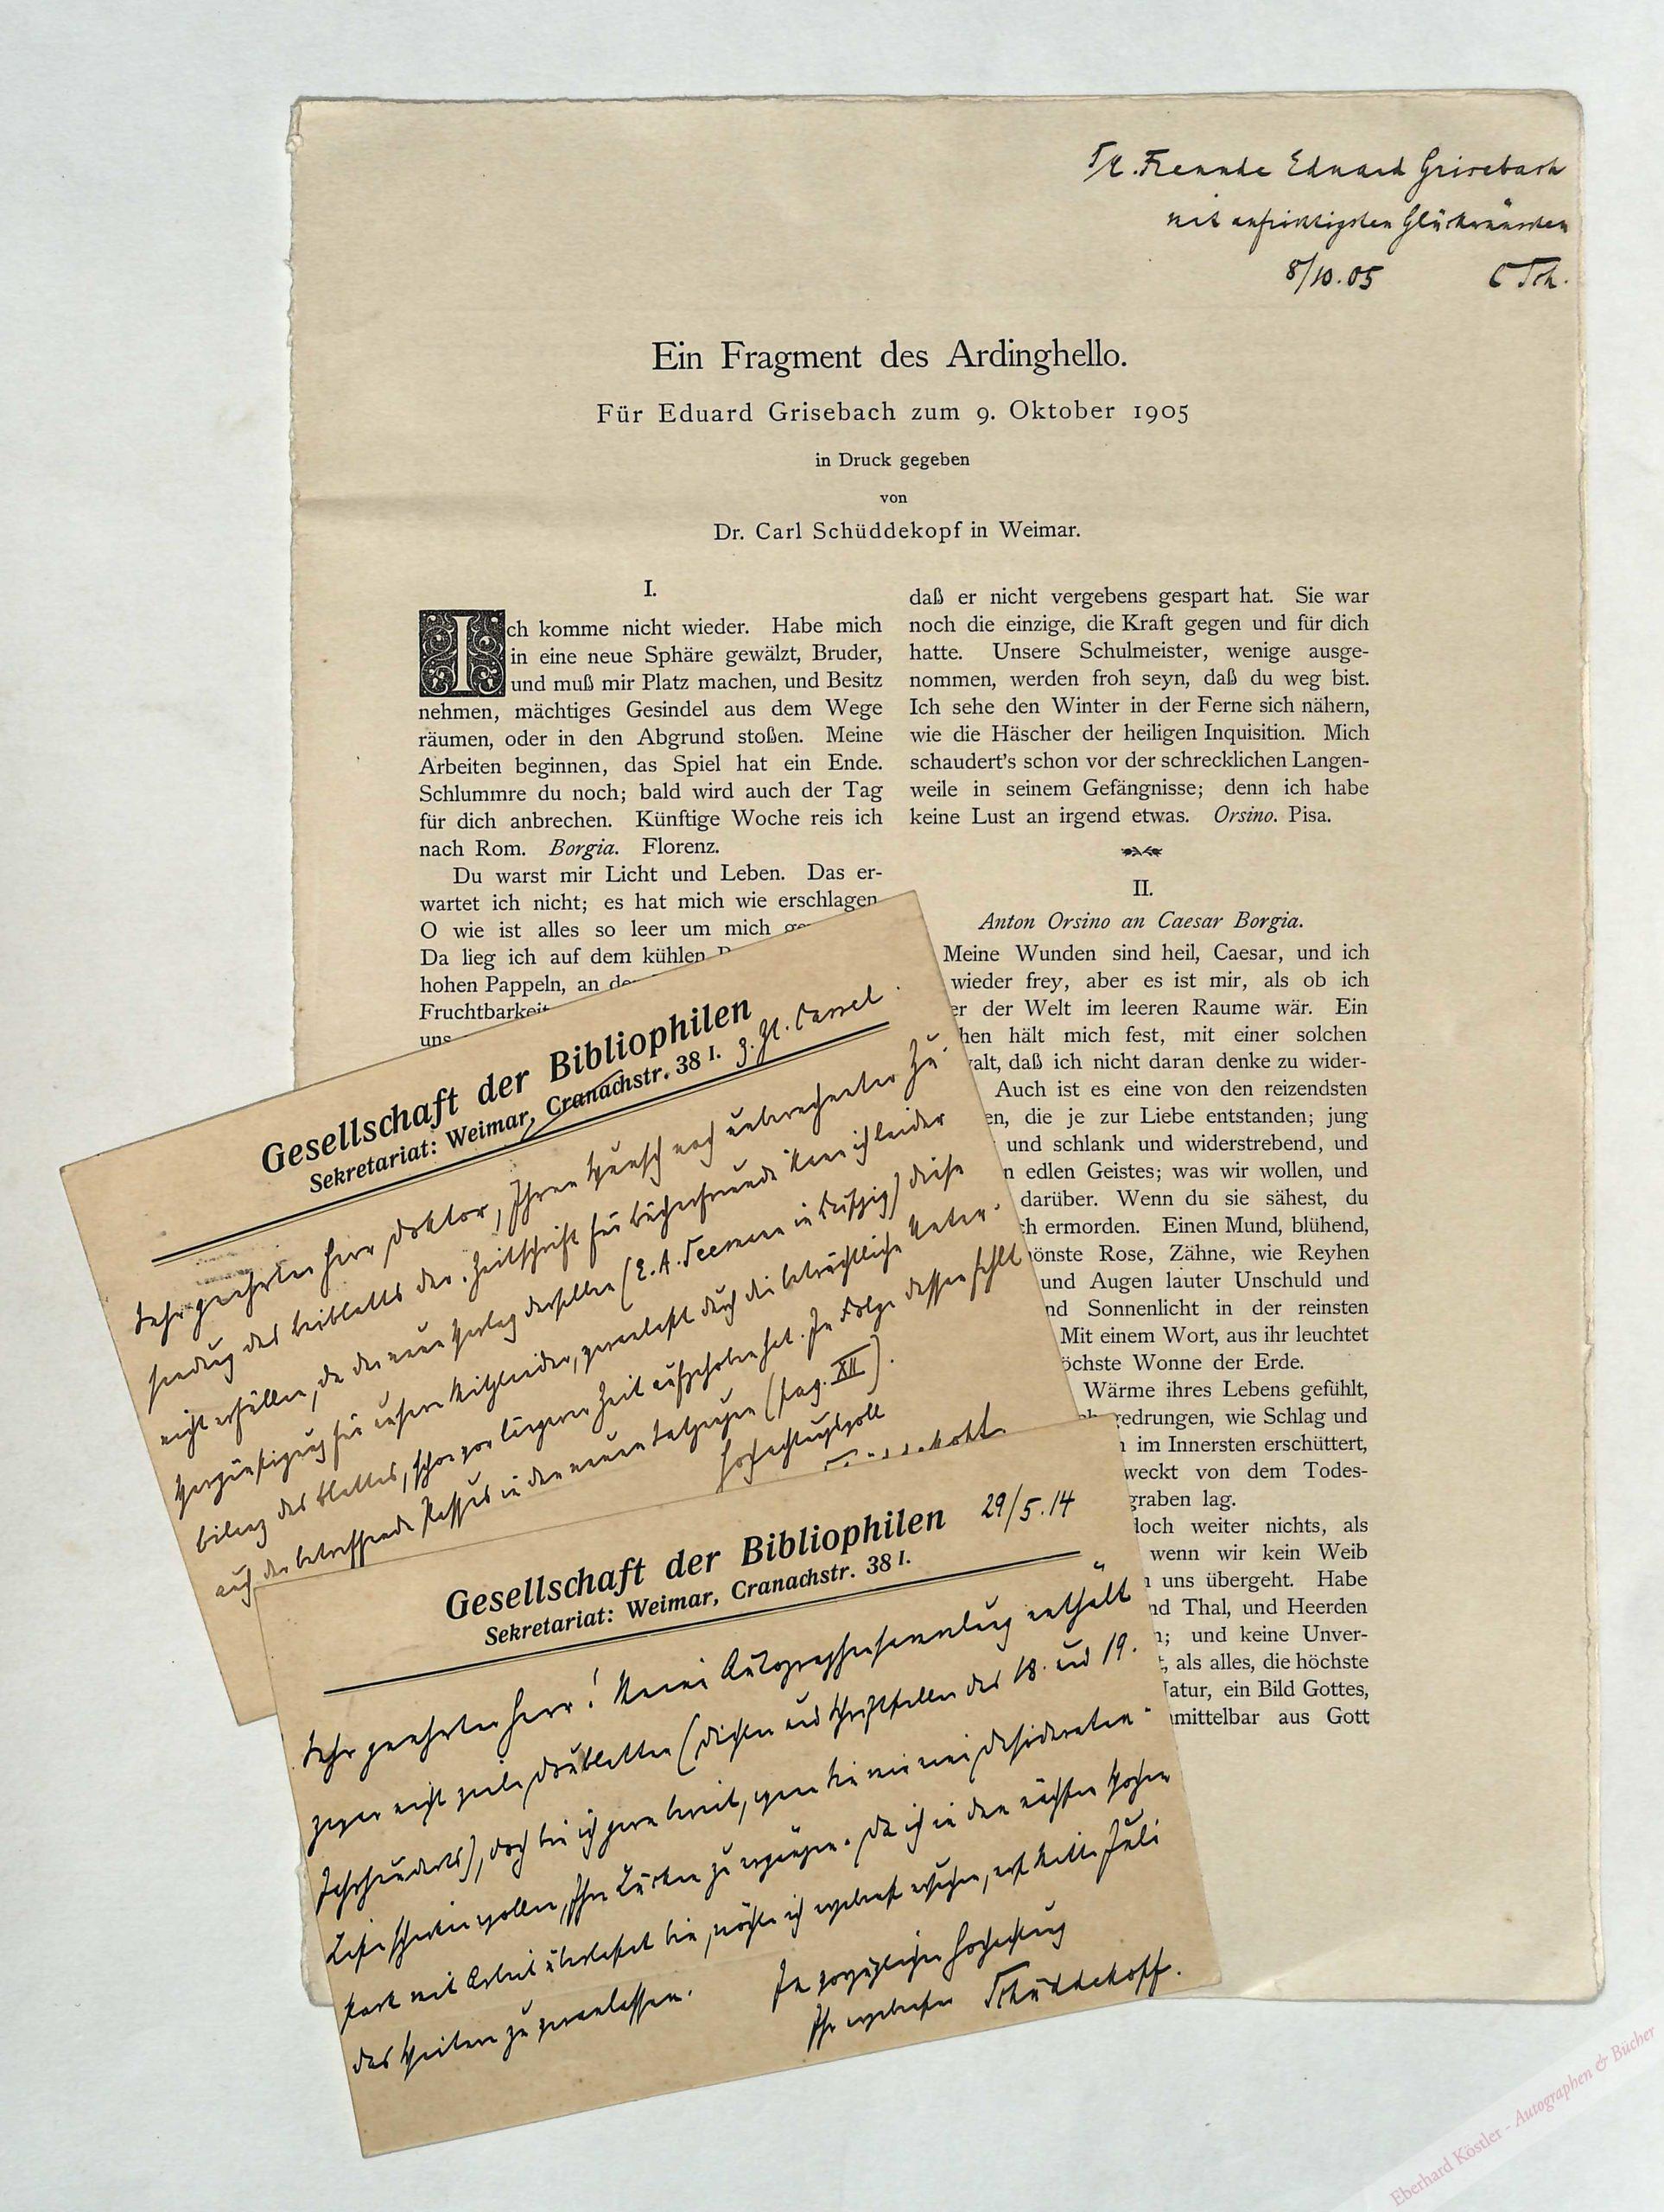 Freunde Eduard Grisebach
mit aufrichtigsten Glückwünschen
8/10.05 C Sch.
Ein Fragment des Ardinghello.
Für Eduard Grisebach zum 9. Oktober 1905
in Druck gegeben
von
Dr. Carl Schüddekopf in Weimar.
I.
Ich komme nicht wieder. Habe mich
in eine neue Sphäre gewälzt, Bruder,
und muß mir Platz machen, und Besitz
nehmen, mächtiges Gesindel aus dem Wege
räumen, oder in den Abgrund stoßen. Meine
Arbeiten beginnen, das Spiel hat ein Ende.
Schlummre du noch; bald wird auch der Tag
für dich anbrechen. Künftige Woche reis ich
nach Rom. Borgia. Florenz.
Du warst mir Licht und Leben. Das er-
wartet ich nicht; es hat mich wie erschlagen
O wie ist alles so leer um mich
Da lieg ich auf dem kühlen
hohen Pappeln, an
Fruchtbarkeit
uns
daß er nicht vergebens gespart hat. Sie war
noch die einzige, die Kraft gegen und für dich
hatte. Unsere Schulmeister, wenige ausge-
nommen, werden froh seyn, daß du weg bist.
Ich sehe den Winter in der Ferne sich nähern,
wie die Häscher der heiligen Inquisition. Mich
schaudert's schon vor der schrecklichen Langen-
weile in seinem Gefängnisse; denn ich habe
keine Lust an irgend etwas. Orsino. Pisa.
II.
Anton Orsino an Caesar Borgia.
Meine Wunden sind heil, Caesar, und ich
wieder frey, aber es ist mir, als ob ich
er der Welt im leeren Raume wär. Ein
hen hält mich fest, mit einer solchen
alt, daß ich nicht daran denke zu wider-
Auch ist es eine von den reizendsten
en, die je zur Liebe entstanden; jung
und schlank und widerstrebend, und
n edlen Geistes; was wir wollen, und
darüber. Wenn du sie sähest, du
ch ermorden. Einen Mund, blühend,
önste Rose, Zähne, wie Reyhen
und Augen lauter Unschuld und
nd Sonnenlicht in der reinsten
Mit einem Wort, aus ihr leuchtet
öchste Wonne der Erde.
Wärme ihres Lebens gefühlt,
gedrungen, wie Schlag und
im Innersten erschüttert,
weckt von dem Todes-
graben lag.
doch weiter nichts, als
wenn wir kein Weib
uns übergeht. Habe
nd Thal, und Heerden
n; und keine Unver-
t, als alles, die höchste
Natur, ein Bild Gottes,
mittelbar aus Gott
Gesellschaft der Bibliophilen
Sekretariat: Weimar, Cranachstr. 38 I. z. Zt. Cassel.
Sehr geehrter Herr Doktor, Ihren Wunsch nach unberechneter Zu-
sendung des Beiblatts der „Zeitschrift für Bücherfreunde" kann ich leider
nicht erfüllen, da der neue Verlag derselben (E. A. Seemann in Leipzig) diese
Vergünstigung für unsere Mitglieder, veranlaßt durch die beträchtliche Unter-
bilanz des Blattes, schon vor längerer Zeit aufgehoben hat. In Folge dessen fehlt
auch der betreffende Passus in den neuen Satzungen (pag. XII).
Hochachtungsvoll
Gesellschaft der Bibliophilen 29/5.14
Sekretariat: Weimar, Cranachstr. 38 I.
Sehr geehrter Herr! Meine Autographensammlung enthält
zwar nicht viele Doubletten (Dichter und Schriftsteller des 18. und 19.
Jahrhunderts), doch bin ich gern bereit, wenn Sie mir eine Desideraten-
Liste schicken wollen, Ihre Lücken zu ergänzen. Da ich in den nächsten Wochen
stark mit Arbeit überlastet bin, möchte ich ergebenst ersuchen, erst Mitte Juli
das Weitere zu veranlassen.
In vorzüglicher Hochachtung
Ihr ergebenster Schüddekopf.
Eberhard Köstler - Autographen & Bücher